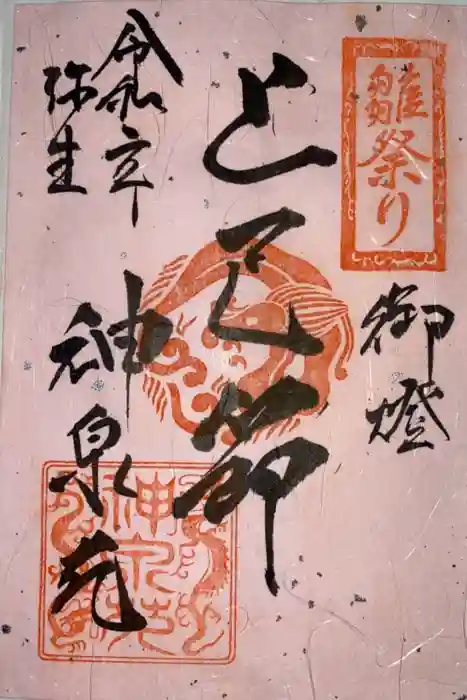 雛祭り
御燈
上巳節
令和六年
弥生
神泉苑
神泉苑